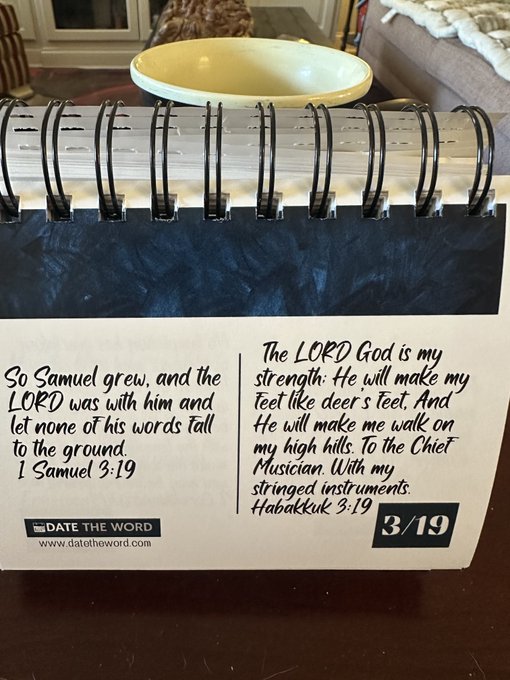 So Samuel grew, and the
LORD was with him and
let none of his words fall
to the ground.
1 Samuel 3:19
DATE THE WORD
www.datetheword.com
The LORD God is my
strength; He will make my
feet like deer's feet, And
He will make me walk on
my high hills. To the Chief
Musician. With my
stringed instruments.
Habakkuk 3:19
3/19